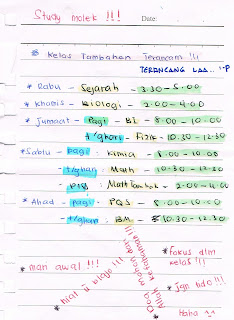 Study molek !!!
Date:
* Kelas Tambahan Terancam !!!
TERANCANG LAA.. :-P
* Rabu - Sejarah - 3.30 - 5.00
* Khamis - Biologi - 2.00 - 4.00
* Jumaat - Pagi - BI - 8.00 - 10.00
t/ghari - Fizik - 10.30 - 12.30
* Sabtu - pagi : kimia - 8.00 - 10.00
t/ghari - Math - 10.30 - 12.30
ptg : Math Tambah - 2.00 - 4.00
* Ahad - pagi - PQS - 8.00 - 10.00
t/ghari - BM - 10.30 - 12.30
* mari awal !!!
* niat
* Fokus dlm
kelas !!!
* Jgn tido !!!
Haha